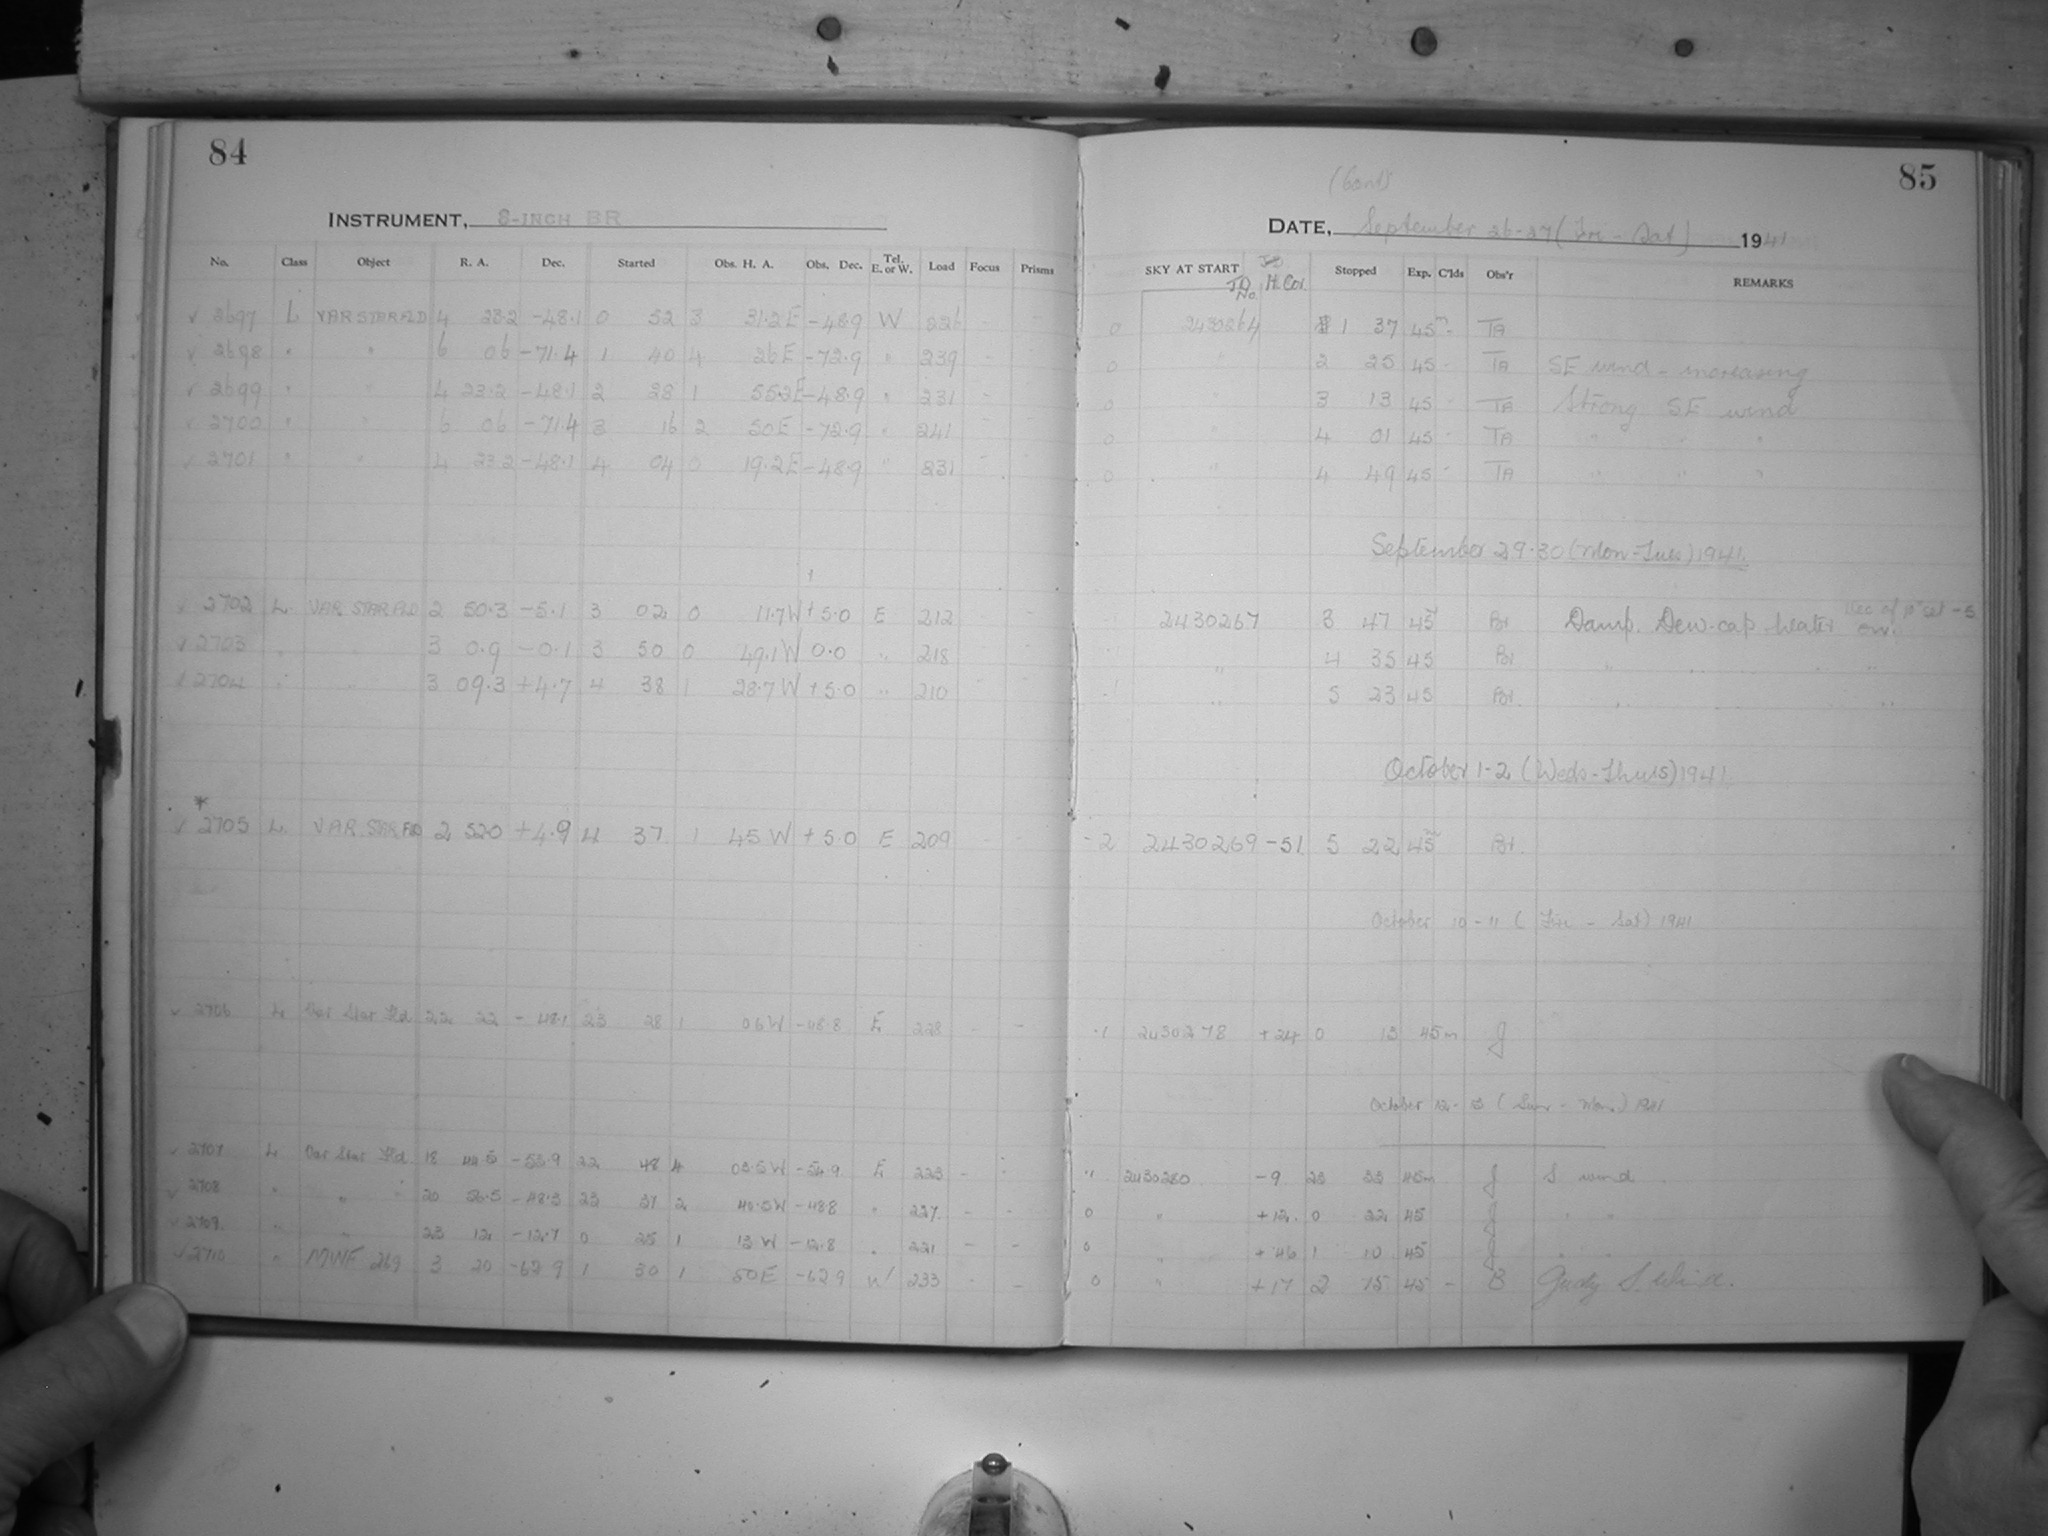 84
INSTRUMENT, 8-INCH BR
No. Class Object R. A. Dec. Started Obs. H. A. Obs. Dec. Tel. E. or W. Load Focus Prisms
✓ 2697 L VAR STAR FLD 4 23.2 -48.1 0 52 3 31.2E -48.9 W 226 - -
✓ 2698 " " 6 06 -71.4 1 40 4 26E -72.9 " 239 -
✓ 2699 " " 4 23.2 -48.1 2 28 1 55.2E -48.9 " 231 -
✓ 2700 " " 6 06 -71.4 3 16 2 50E -72.9 " 241 -
✓ 2701 " " 4 23.2 -48.1 4 04 0 19.2E -48.9 " 231 -
✓ 2702 L VAR STAR FLD 2 50.3 -5.1 3 02 0 11.7W +5.0 E 212
✓ 2703 " " 3 0.9 -0.1 3 50 0 49.1W 0.0 " 218
✓ 2704 " " 3 09.3 +4.7 4 38 1 28.7W +5.0 " 210
*
✓ 2705 L VAR STAR FLD 2 52.0 +4.9 4 37 1 45W +5.0 E 209 -
✓ 2706 L Var Star Fld 22 22 -48.1 23 28 1 06W -48.8 E 228 - -
✓ 2707 L Var Star Fld 18 -53.9 22 48 4 03.5W -54.9 E 223 -
✓ 2708 " " 20 26.5 -48.3 23 37 2 40.5W -48.8 " 227 - -
✓ 2709 " " 23 12 -12.7 0 25 1 13W -12.8 " 221 - -
✓ 2710 " MWF 269 3 20 -62.9 1 30 1 50E -62.9 W 233 - -
85
(Cont)
DATE, September 26-27 (Fri - Sat) 1941
SKY AT START JD No. H. Cor. Stopped Exp. C'lds Obs'r REMARKS
0 2430264 1 37 45m - TA
0 " 2 25 45 - TA SE wind - increasing
0 " 3 13 45 - TA Strong SE wind
0 " 4 01 45 - TA " " "
0 " 4 49 45 - TA " " "
September 29-30 (Mon-Tues) 1941
2430267 3 47 45m Br Damp. Dew-cap heater on.
" 4 35 45 Br " " "
-1 " 5 23 45 Br. " "
October 1-2 (Weds-Thurs) 1941
-2 2430269 -51 5 22 45m Br.
October 10-11 (Fri - Sat) 1941
-1 2430278 +24 0 13 45m J
October 12-13 (Sun - Mon) 1941
-1 2430280 -9 23 33 45m J S wind
0 " +12 0 22 45 J " "
0 " +46 1 10 45 J " "
0 " +17 2 15 45 - B Gusty S. Wind.